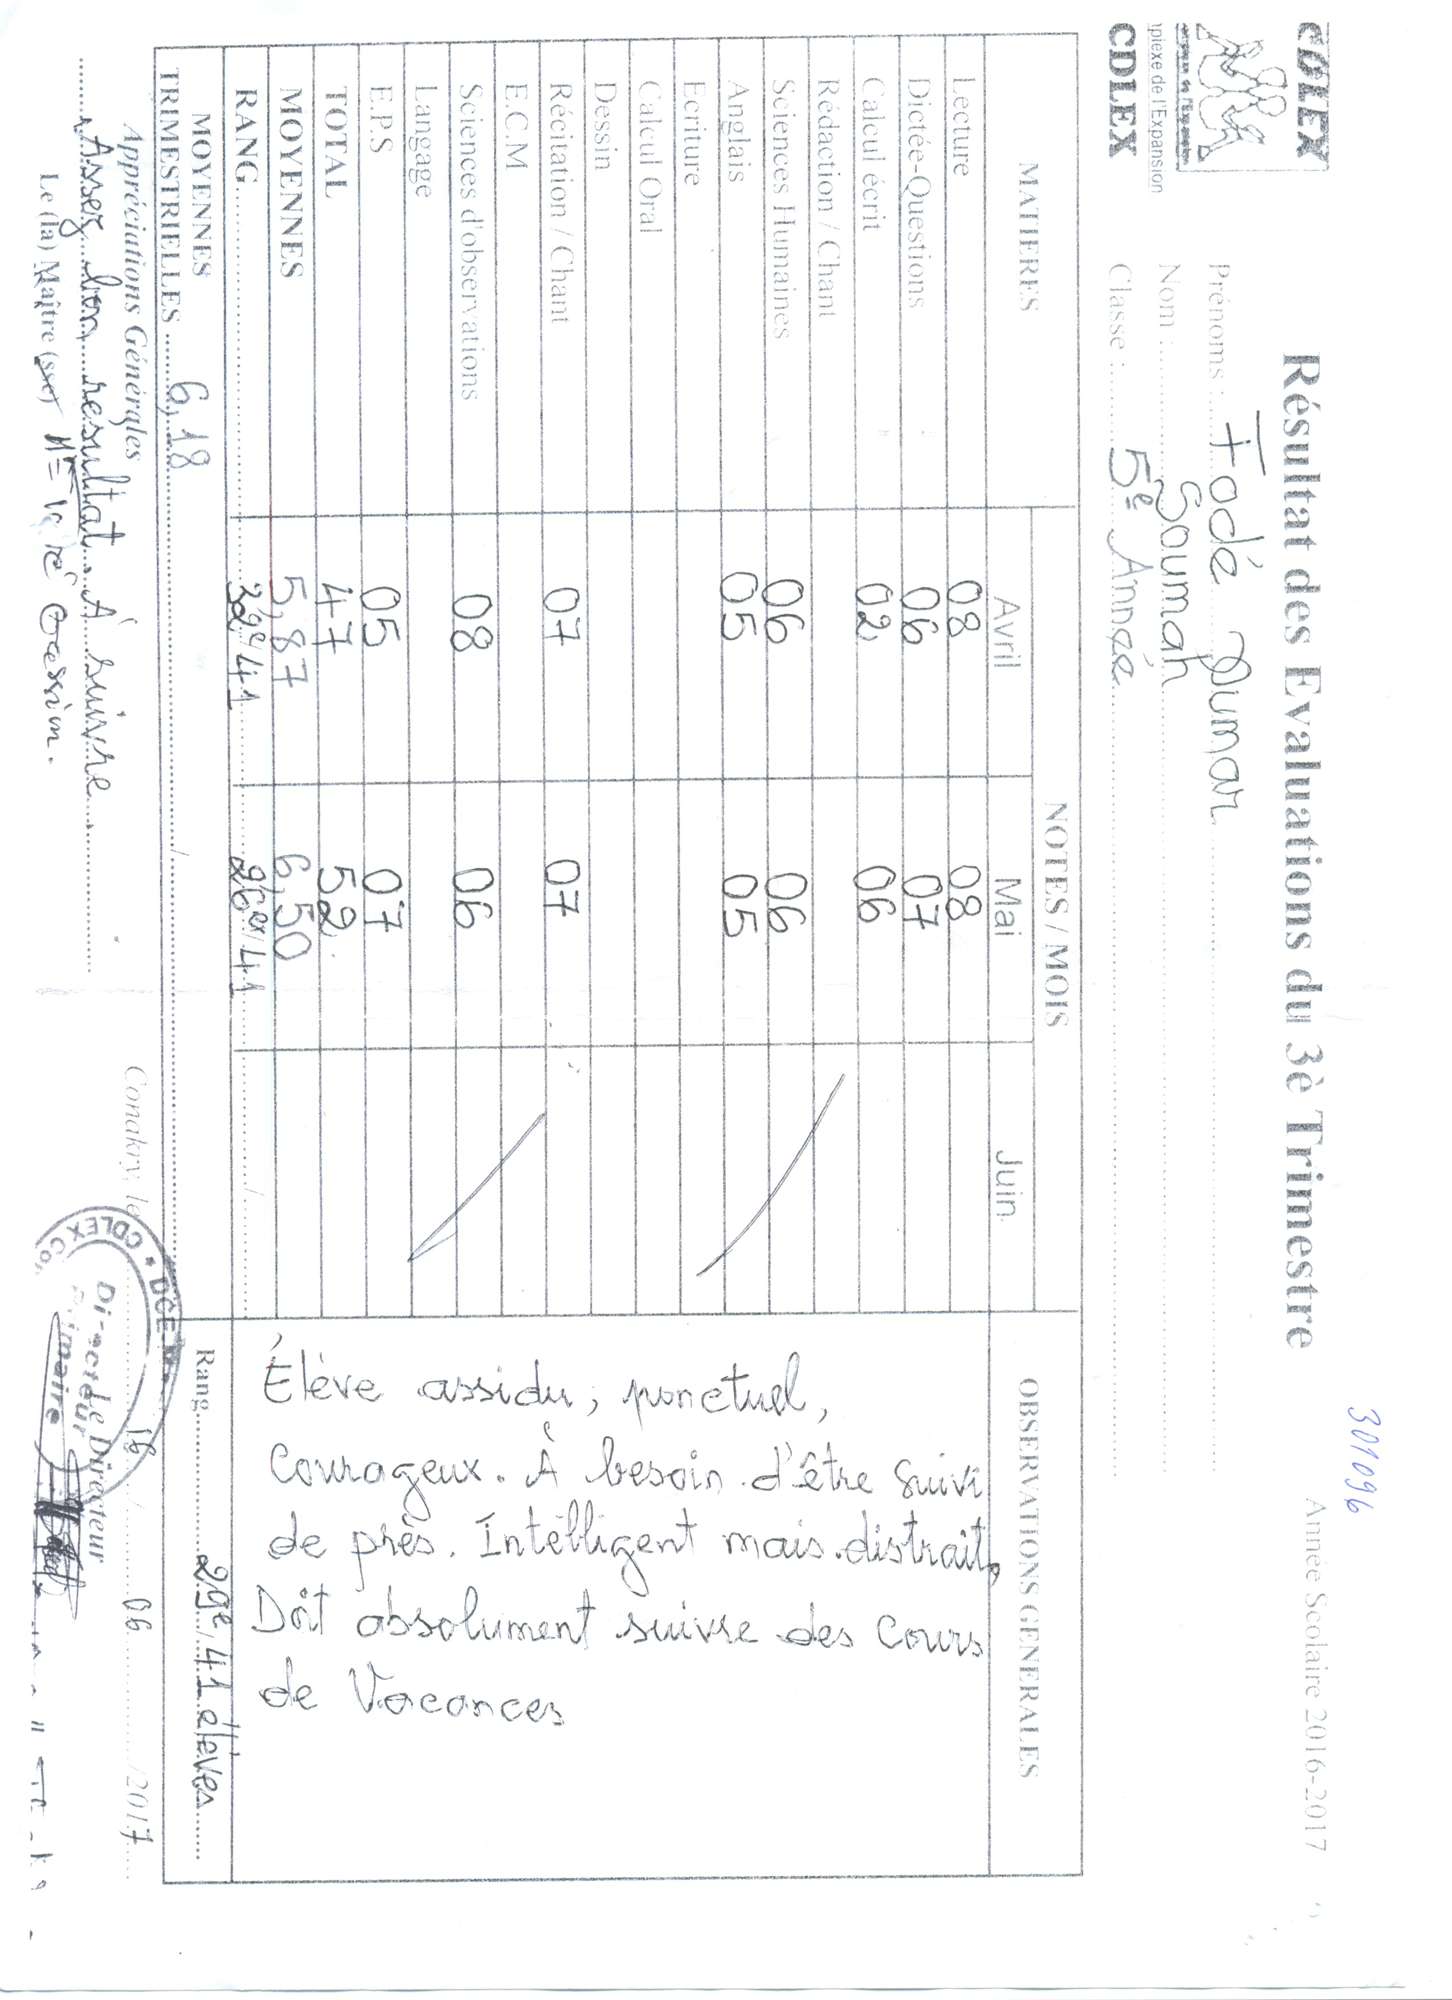 301096
CDLEX
Complexe de l'Expansion
CDLEX
Résultat des Evaluations du 3è Trimestre
Année Scolaire 2016-2017
Prénoms : Fodé Oumar
Nom : Soumah
Classe : 5e Année
MATIERES NOTES / MOIS OBSERVATIONS GENERALES
Avril Mai Juin
Lecture 08 08
Dictée-Questions 06 07
Calcul écrit 02 06
Rédaction / Chant
Sciences Humaines 06 06
Anglais 05 05
Ecriture
Calcul Oral
Dessin
Récitation / Chant 07 07
E.C.M
Sciences d'observations 08 06
Langage
E.P.S 05 07
TOTAL 47 52
MOYENNES 5,87 6,50
RANG 32e/41 26ex/41
Élève assidu, ponctuel,
Courageux. À besoin d'être suivi
de près. Intelligent mais distrait.
Doit absolument suivre des cours
de Vacances
MOYENNES
TRIMESTRIELLES 6,18 Rang 29e/41 élèves
Appréciations Générales
Conakry, le 16 / 06 / 2017
Assez bon resultat. À suivre.
Le (la) Maître (sse)
Le Directeur
CDLEX
Directeur
Primaire